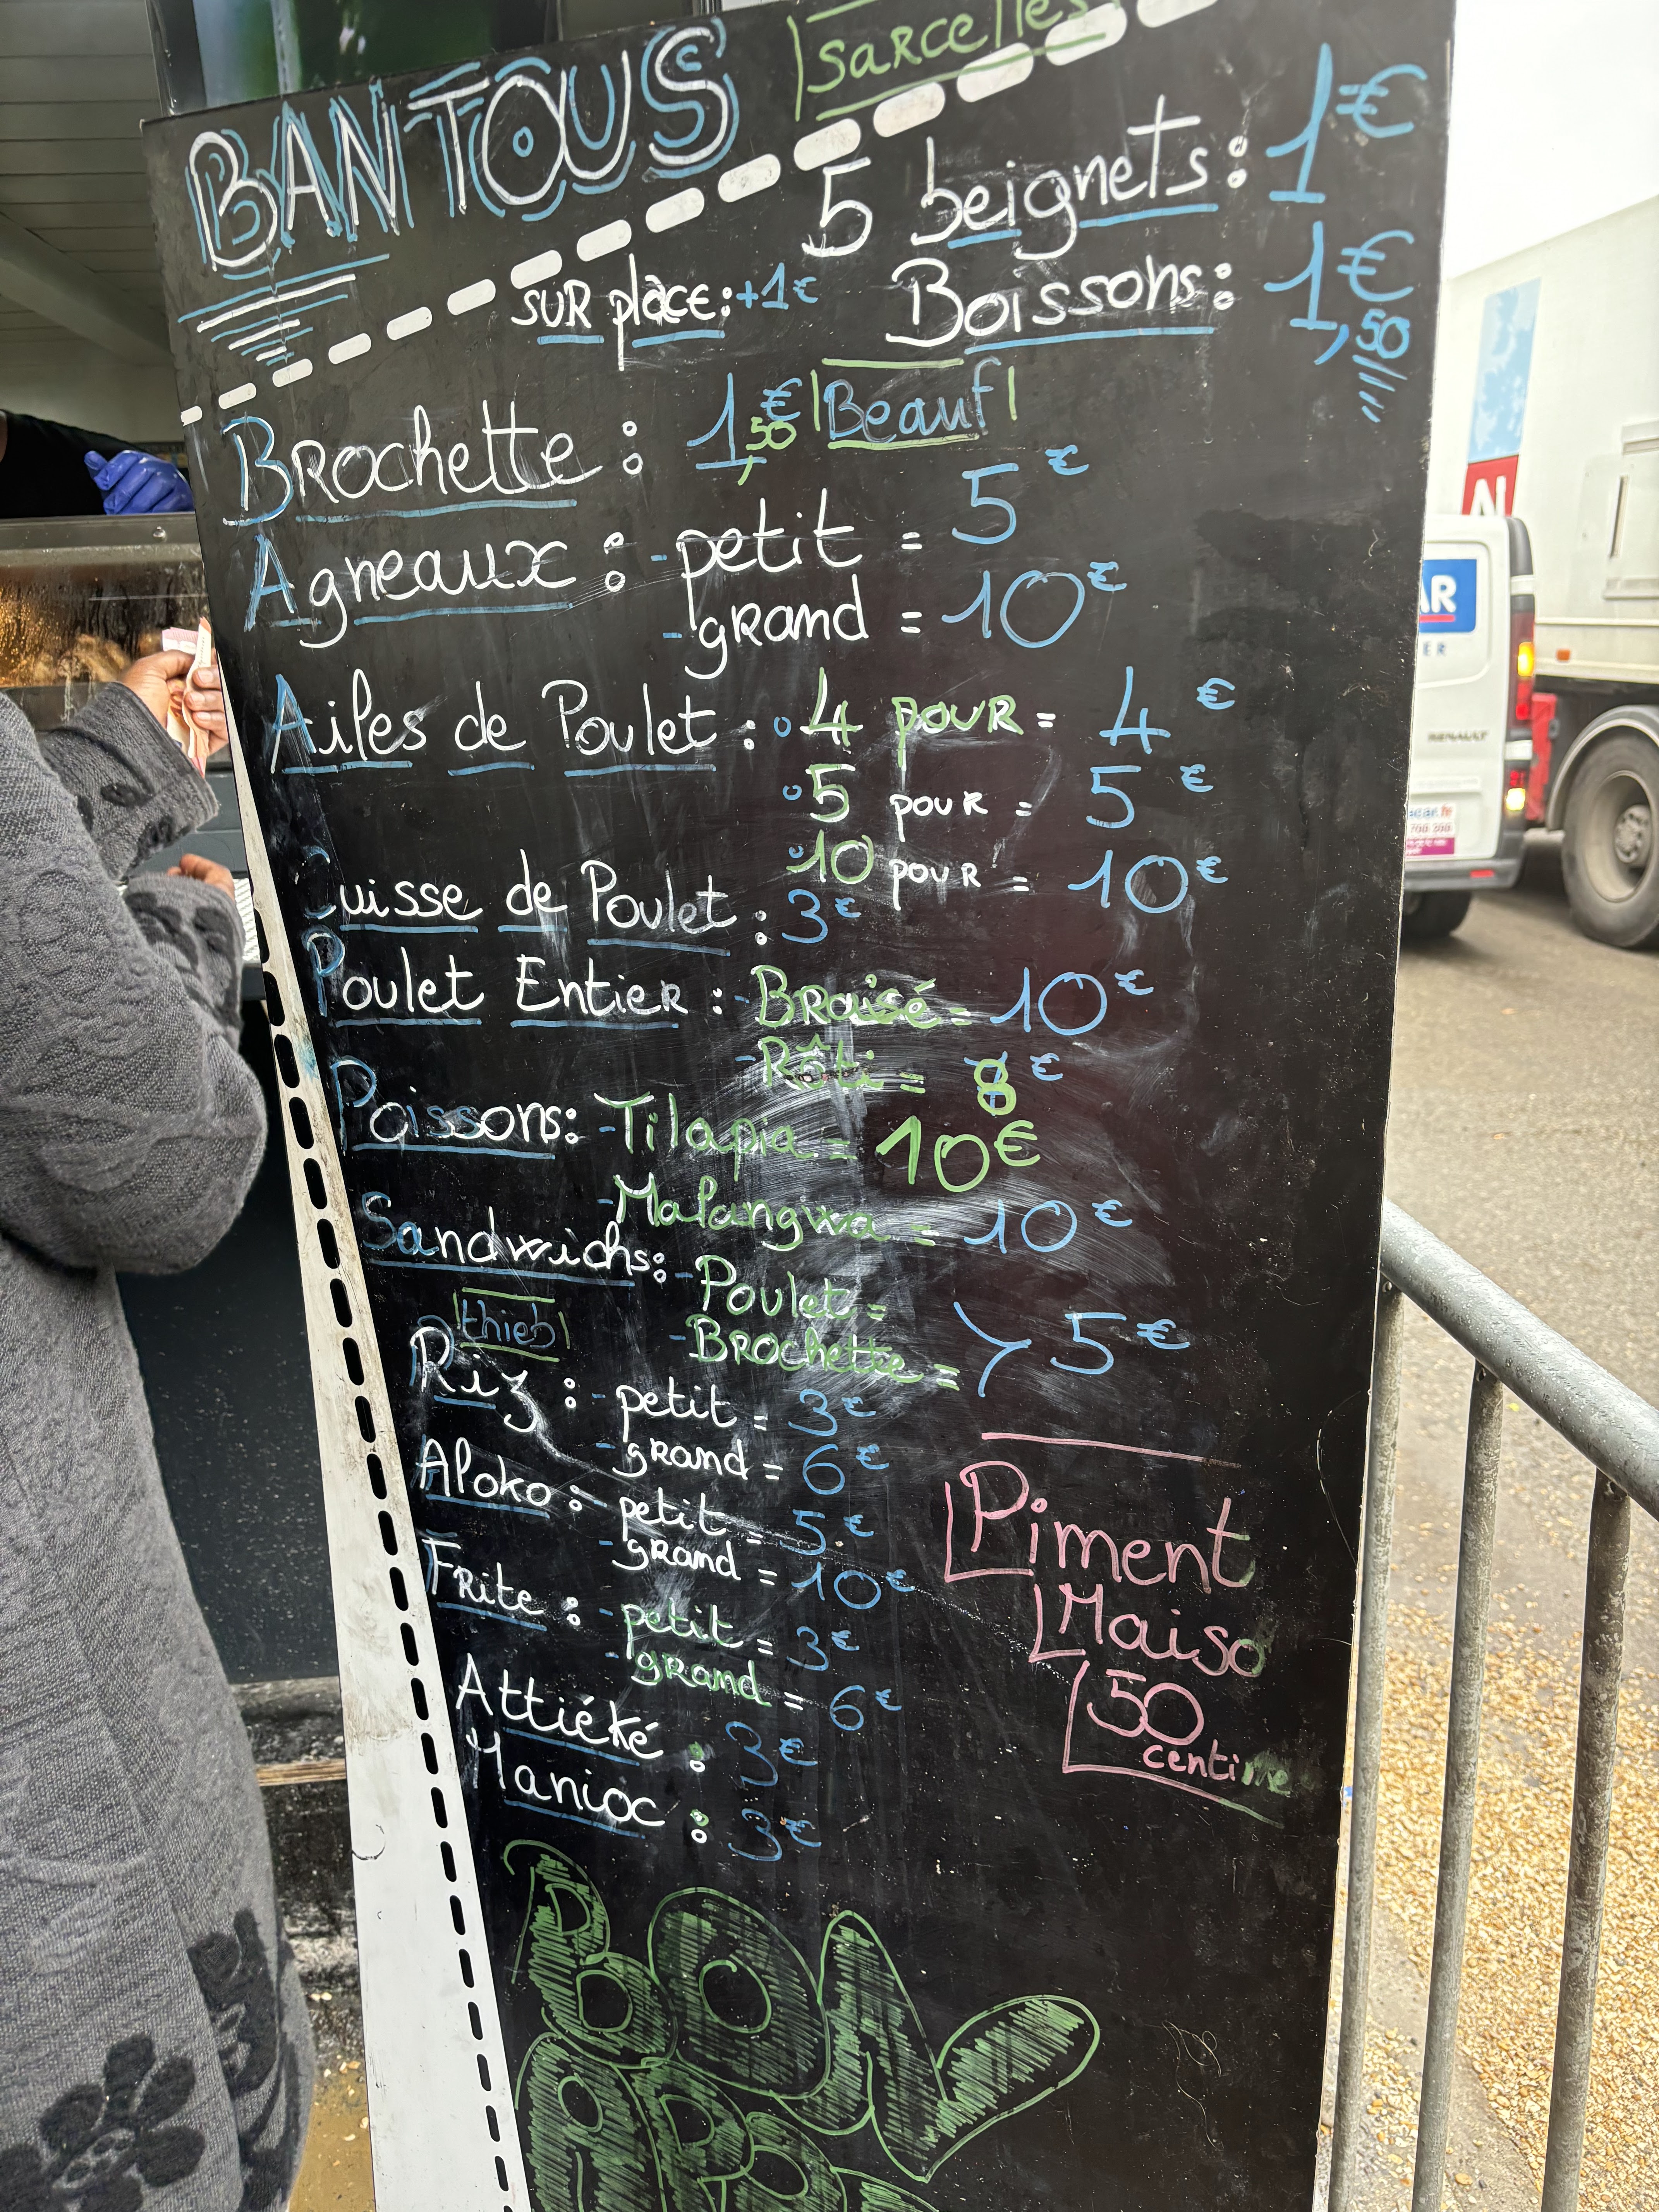 BANTOUS
sarcelles
5 beignets: 1€
sur place: +1€
Boissons: 1€,50
Brochette: 1€,50 Beauf
Agneaux: - petit = 5€
- grand = 10€
Ailes de Poulet: 4 pour = 4€
5 pour = 5€
10 pour = 10€
Cuisse de Poulet: 3€
Poulet Entier: - Braisé = 10€
- Rôti = 8€
Poissons: - Tilapia = 10€
- Malangwa = 10€
Sandwichs: - Poulet =
- Brochette = 5€
thieb
Riz: - petit = 3€
- grand = 6€
Aloko: - petit = 5€
- grand = 10€
Frite: - petit = 3€
- grand = 6€
Attiéké: 3€
Manioc: 3€
Piment
Maiso
50
centime
BON
APP
AR
ER
RENAULT